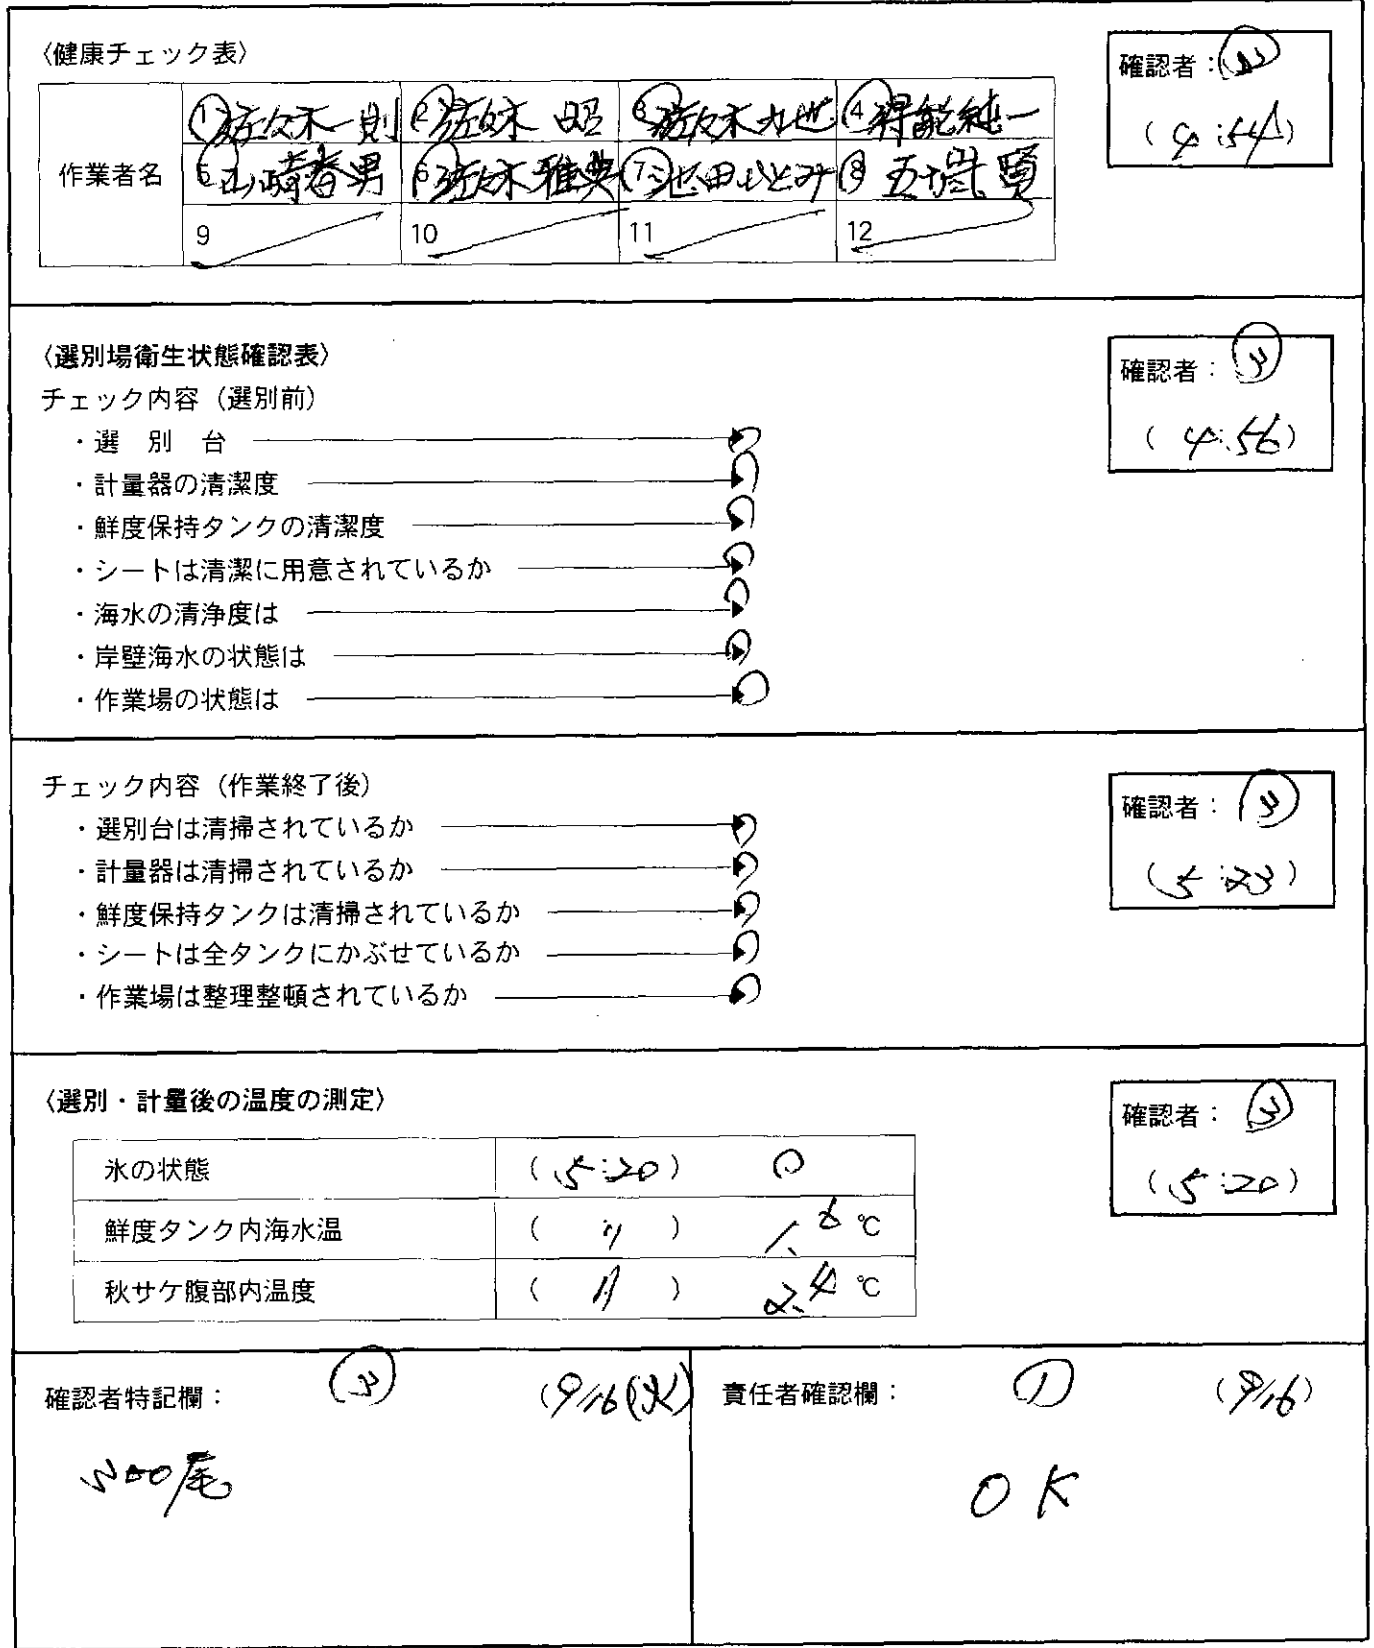 〈健康チェック表〉
確認者：
(4:54)
作業者名
①佐々木一則 ②佐々木 昭 ③佐々木九世 ④得能純一
⑤山崎春男 ⑥佐々木雅典 ⑦池田ひとみ ⑧五十嵐賢
9 10 11 12
〈選別場衛生状態確認表〉
確認者：③
(4:56)
チェック内容（選別前）
・選 別 台
・計量器の清潔度
・鮮度保持タンクの清潔度
・シートは清潔に用意されているか
・海水の清浄度は
・岸壁海水の状態は
・作業場の状態は
チェック内容（作業終了後）
確認者：③
(5:23)
・選別台は清掃されているか
・計量器は清掃されているか
・鮮度保持タンクは清掃されているか
・シートは全タンクにかぶせているか
・作業場は整理整頓されているか
〈選別・計量後の温度の測定〉
確認者：③
(5:20)
氷の状態 (5:20) ○
鮮度タンク内海水温 ( 〃 ) 1.6 ℃
秋サケ腹部内温度 ( 〃 ) 2.4 ℃
確認者特記欄：③ (9/16(水)
責任者確認欄：① (9/16)
尾
OK